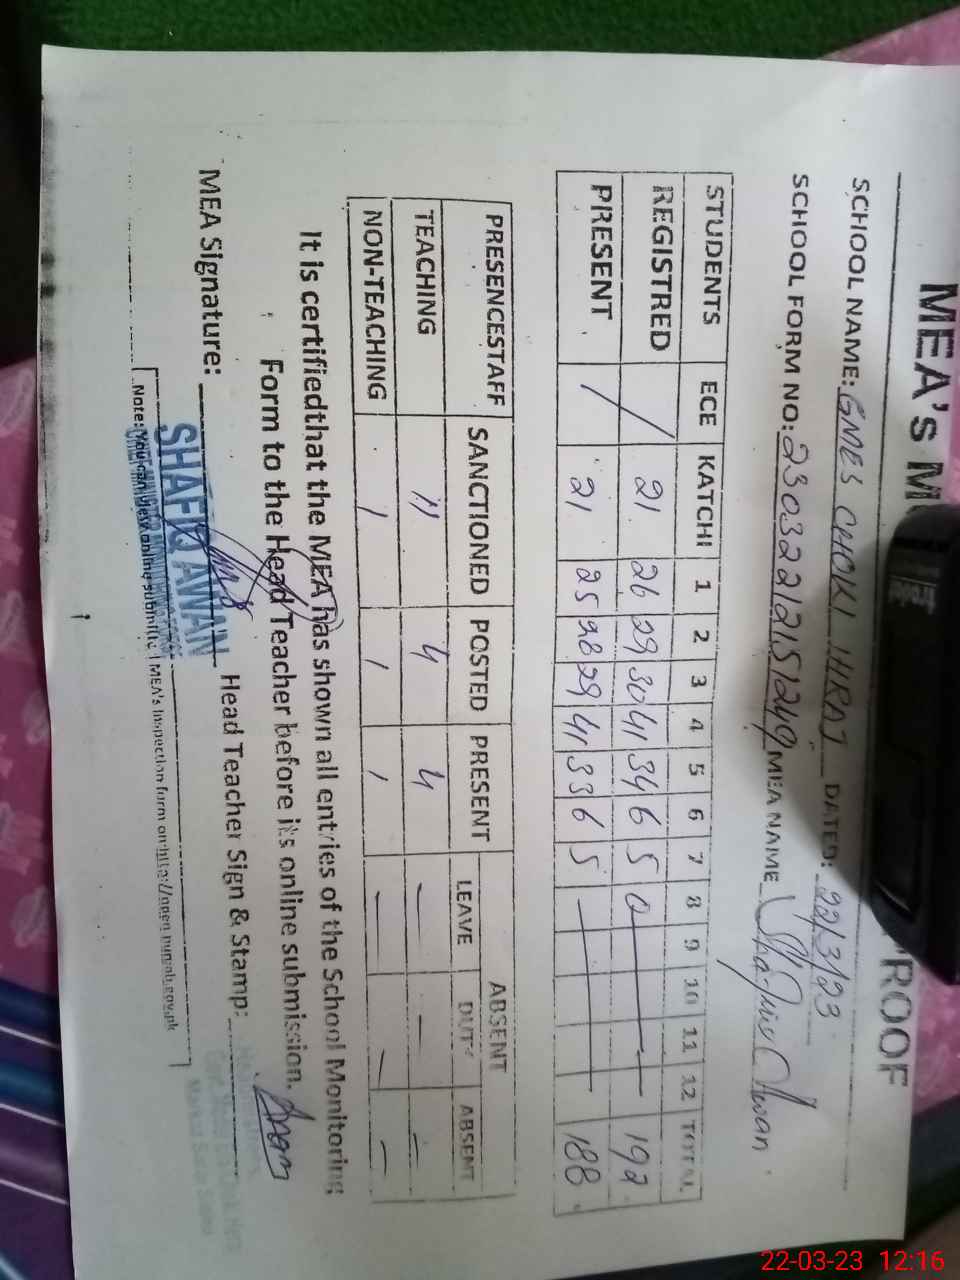 MEA'S M ROOF
SCHOOL NAME: GMES CHOKI HIRAJ DATED: 22/3/23
SCHOOL FORM NO: 23032212151249 MEA NAME Shafiq Awan
STUDENTS ECE KATCHI 1 2 3 4 5 6 7 8 9 10 11 12 TOTAL
REGISTRED / 21 26 29 30 41 34 6 5 0 — 192
PRESENT 21 25 28 29 41 33 6 5 — 188
PRESENCESTAFF SANCTIONED POSTED PRESENT ABSENT
LEAVE DUTY ABSENT
TEACHING 11 4 4 — — —
NON-TEACHING 1 1 1 — — —
It is certifiedthat the MEA has shown all entries of the School Monitoring
Form to the Head Teacher before its online submission.
MEA Signature: Head Teacher Sign & Stamp:
SHAFIQ AWAN
Note: You can view online submitted MEA's Inspection form on http://open.punjab.gov.pk
22-03-23 12:16